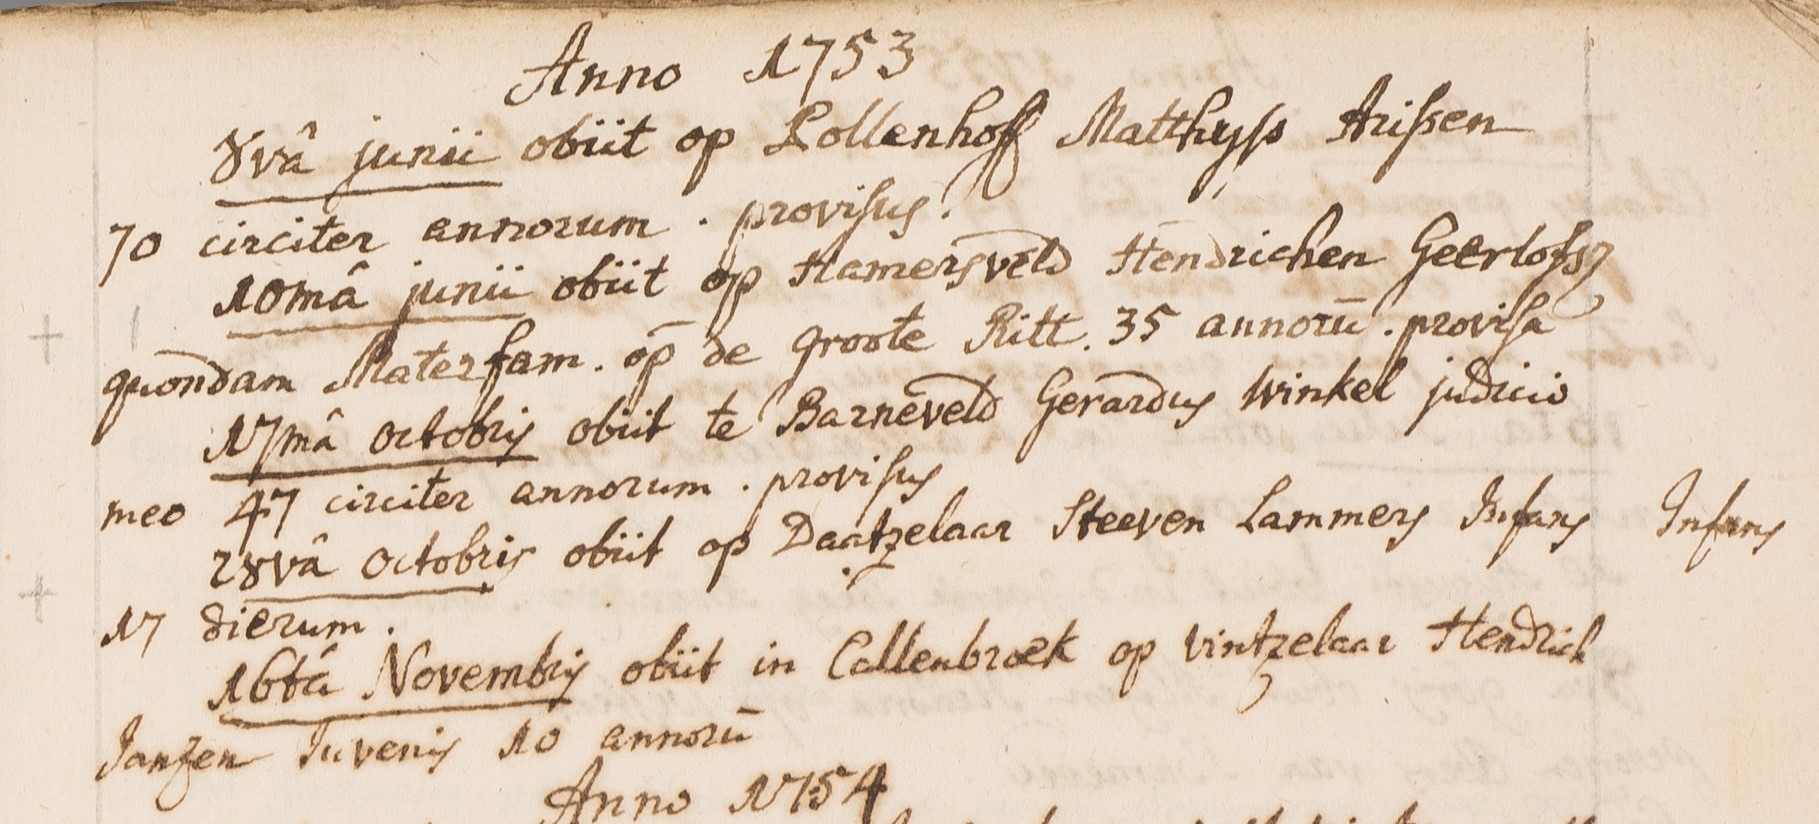 Anno 1753
8vâ junii obiit op Lollenhoff Matthyss Arissen
70 circiter annorum . provisus.
10mâ junii obiit op Hamersveld Hendrichen Geerlofsz
quondam Materfam. op de groote Ritt. 35 annorū . provisa
17mâ octobris obiit te Barneveld Gerardus Winkel judicio
meo 47 circiter annorum . provisus
28vâ octobris obiit op Daatzelaar Steeven Lammers Infans Infans
17 dierum .
16tâ Novembris obiit in Callenbroek op Vintzelaar Hendrich
Janzen Iuvenis 10 annorū
Anno 1754